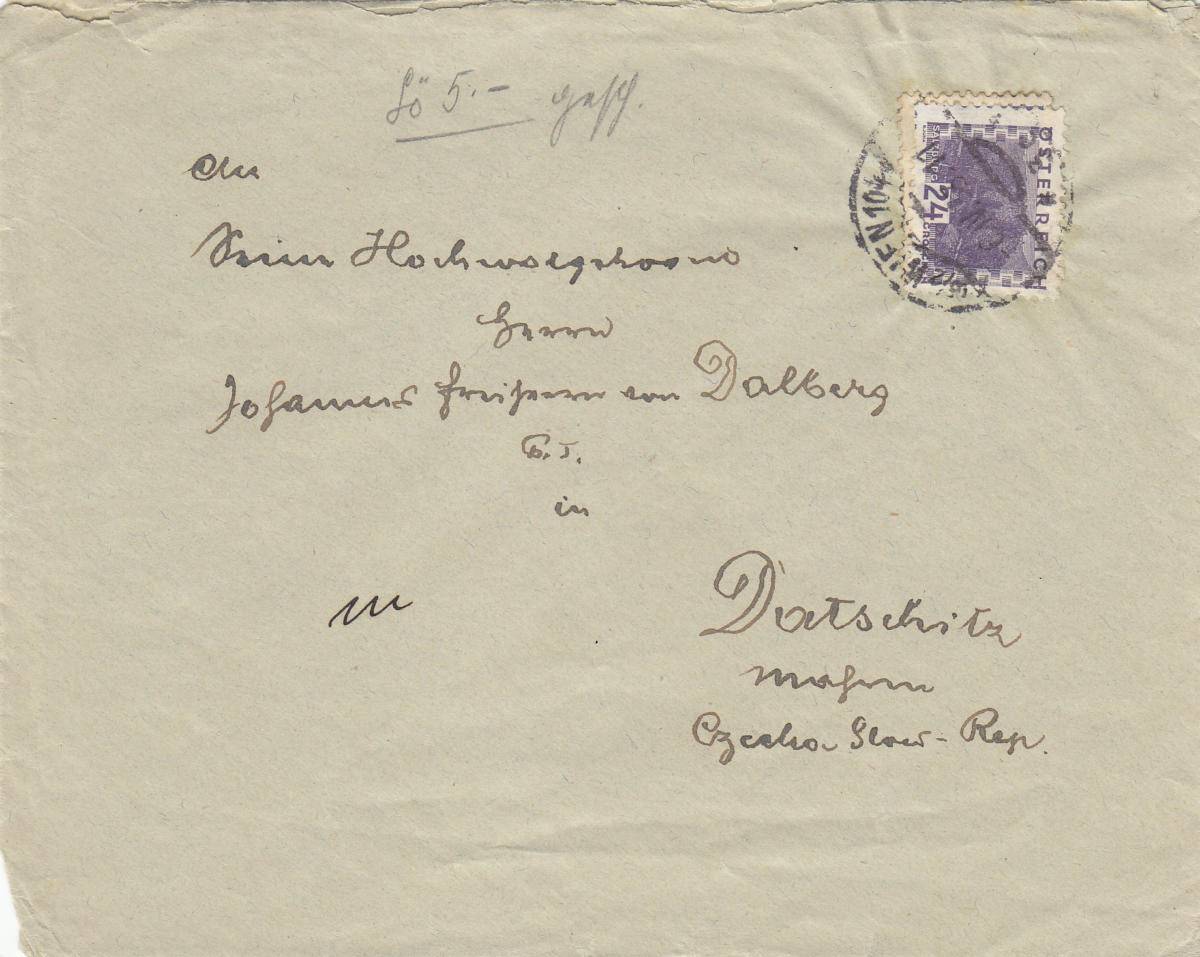 5.– gesch.
An
Seine Hochwolgeboren
Herrn
Johannes Freiherrn von Dalberg
in
Datschitz
Mähren
Czecho Slow- Rep.
ÖSTERREICH
24
WIEN 104